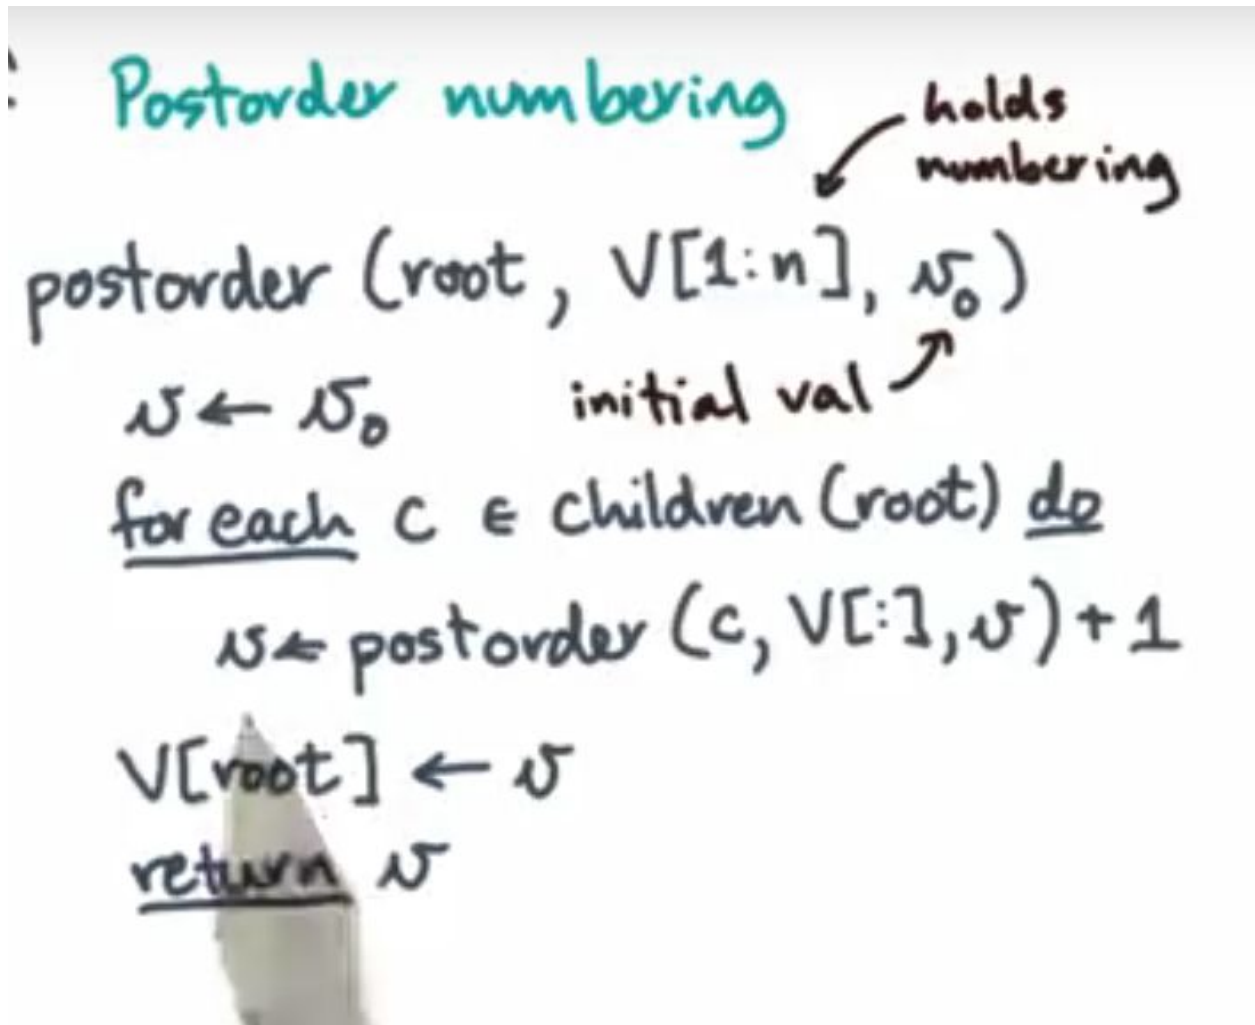 Postorder numbering
holds
numbering
postorder (root, V[1:n], v₀)
initial val
v ← v₀
for each c ∈ children (root) do
v ← postorder (c, V[:], v) + 1
V[root] ← v
return v